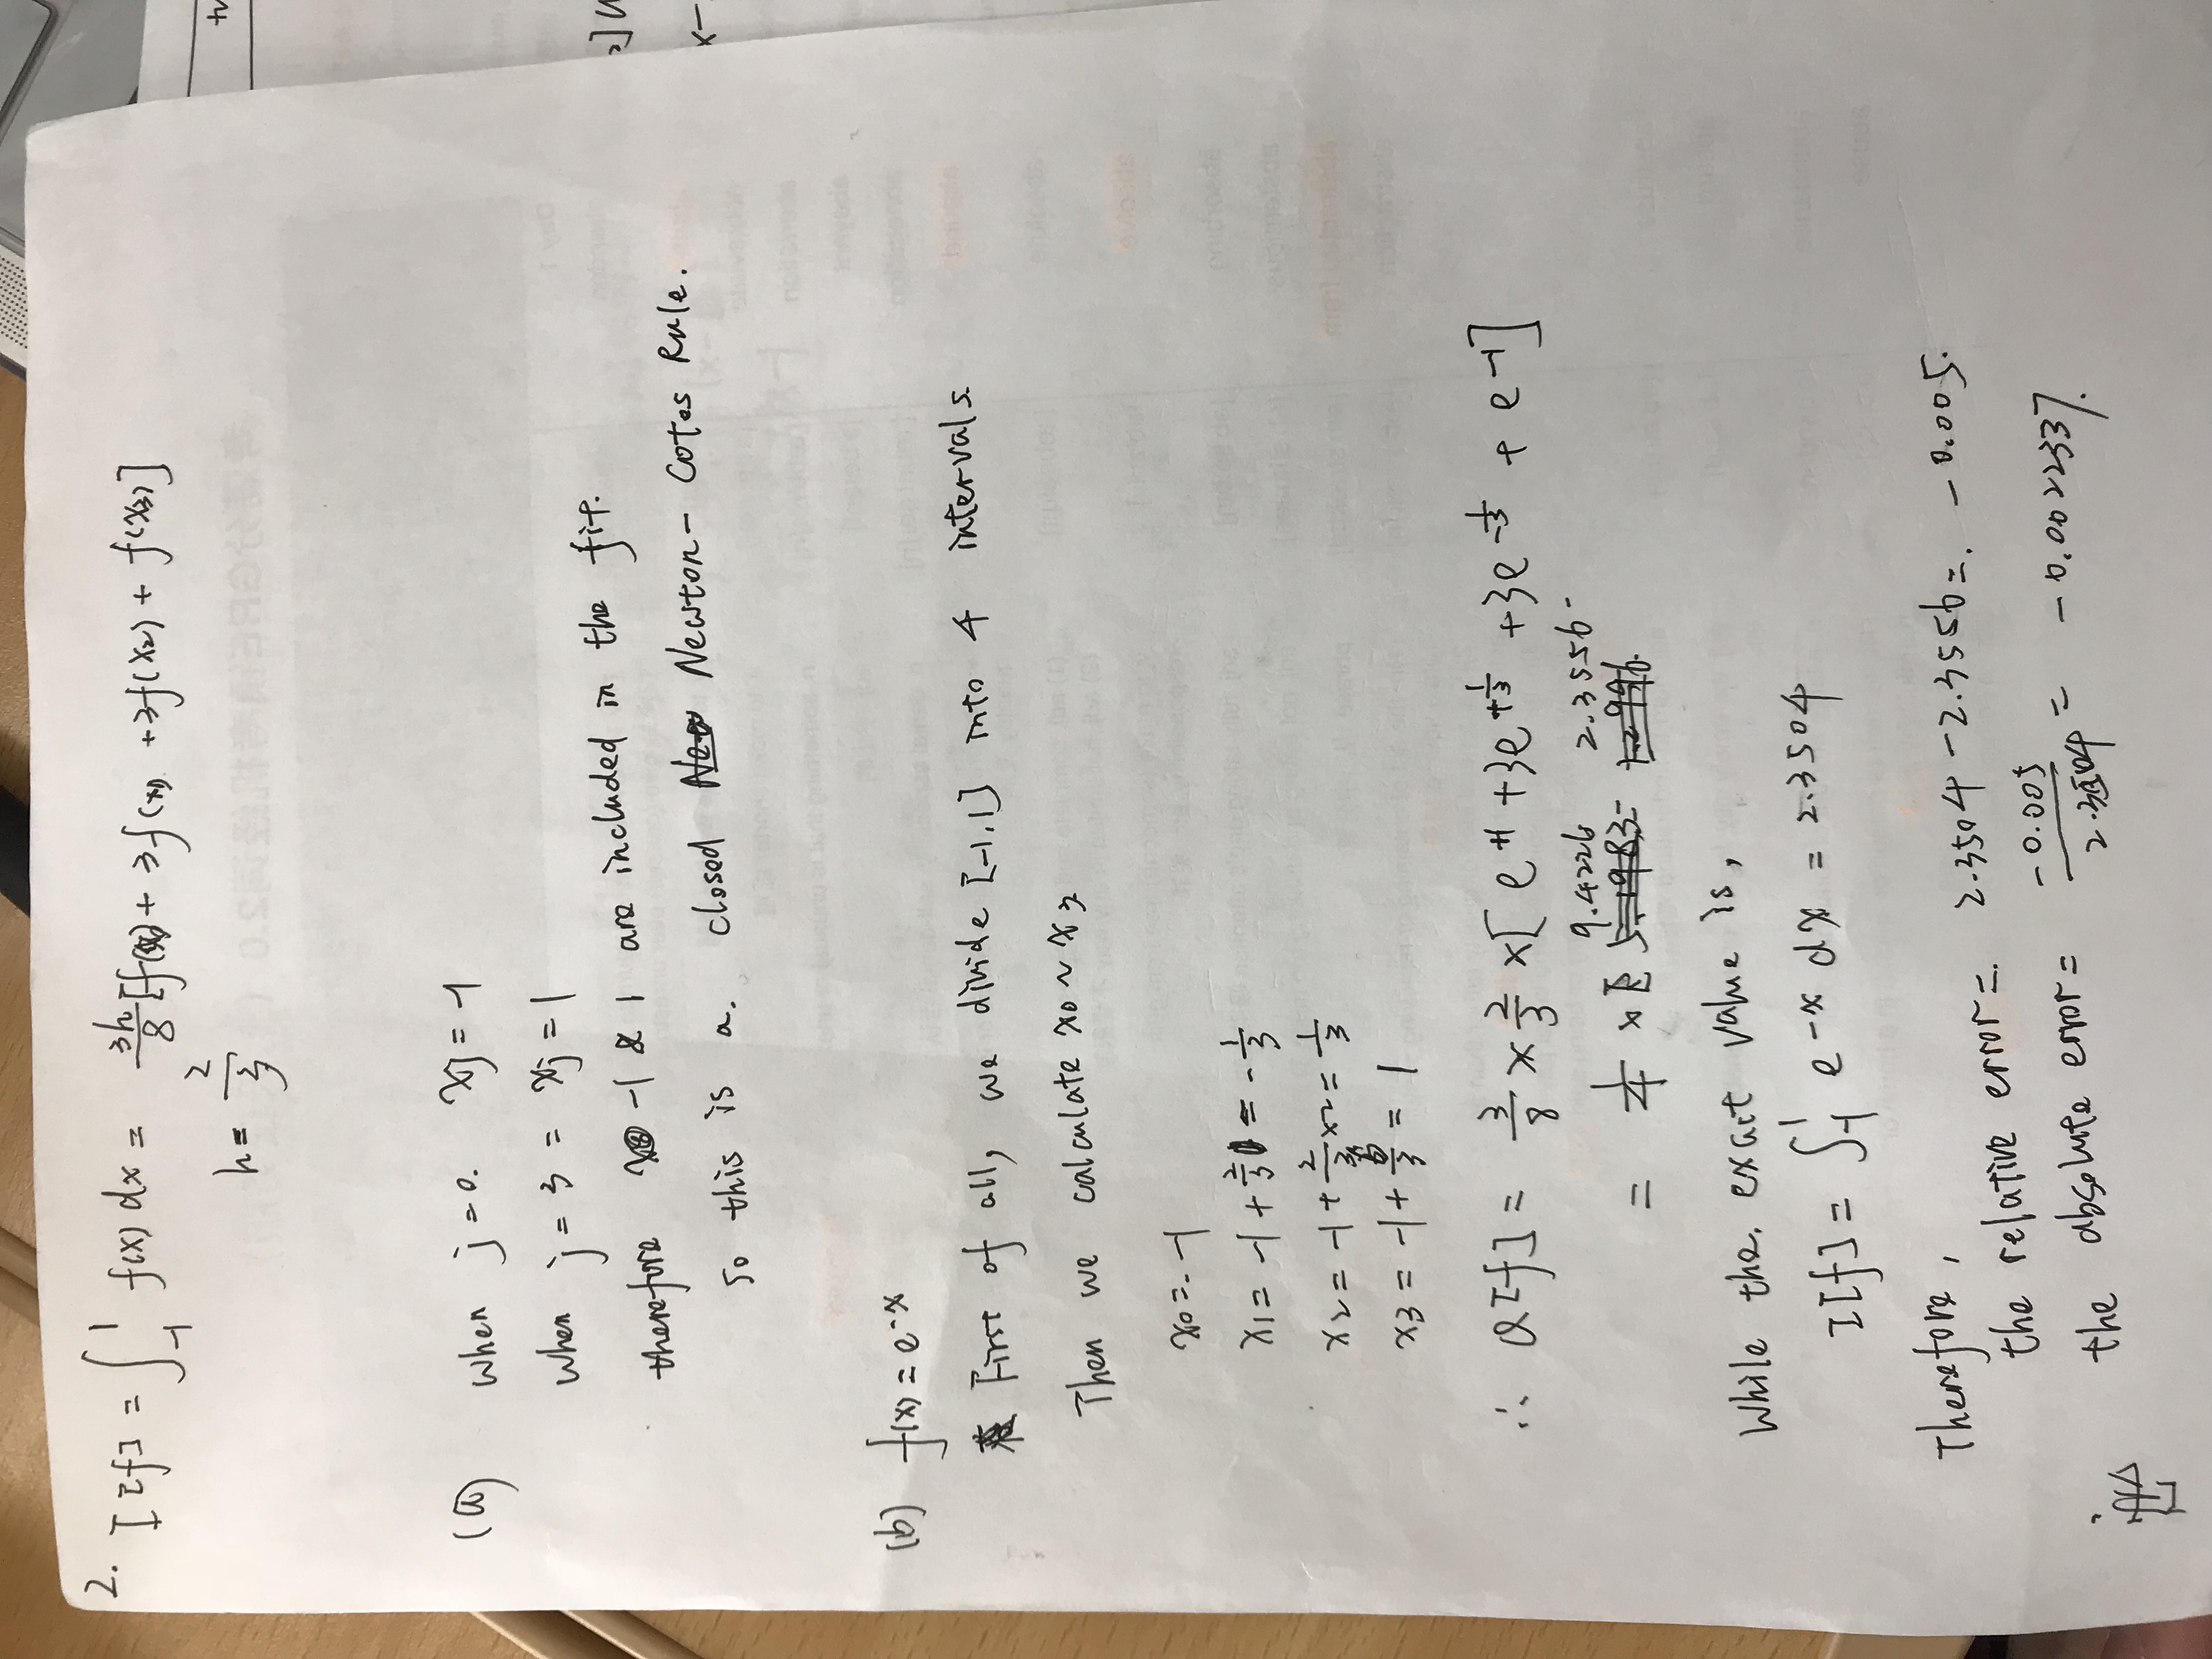 2. I[f] = ∫₋₁¹ f(x) dx = 3h/8 [f(x₀) + 3f(x₁) + 3f(x₂) + f(x₃)]
h = 2/3
(a) When j = 0. xj = -1
When j = 3 = xj = 1
therefore -1 & 1 are included in the fit.
So this is a. closed Newton - Cotes Rule.
(b) f(x) = e^-x
First of all, we divide [-1,1] into 4 intervals.
Then we calculate x₀ ~ x₃
x₀ = -1
x₁ = -1 + 2/3 = -1/3
x₂ = -1 + 2/3 × 2 = 1/3
x₃ = -1 + 6/3 = 1
∴ Q[f] = 3/8 × 2/3 × [e^+1 + 3e^+1/3 + 3e^-1/3 + e^-1]
= 1/4 × 9.4226 2.3556
While the. exact value is,
I[f] = ∫₋₁¹ e^-x dx = 2.3504
Therefore,
the relative error = 2.3504 - 2.3556 =. -0.005.
the absolute error = -0.005/2.3504 = -0.0022337.